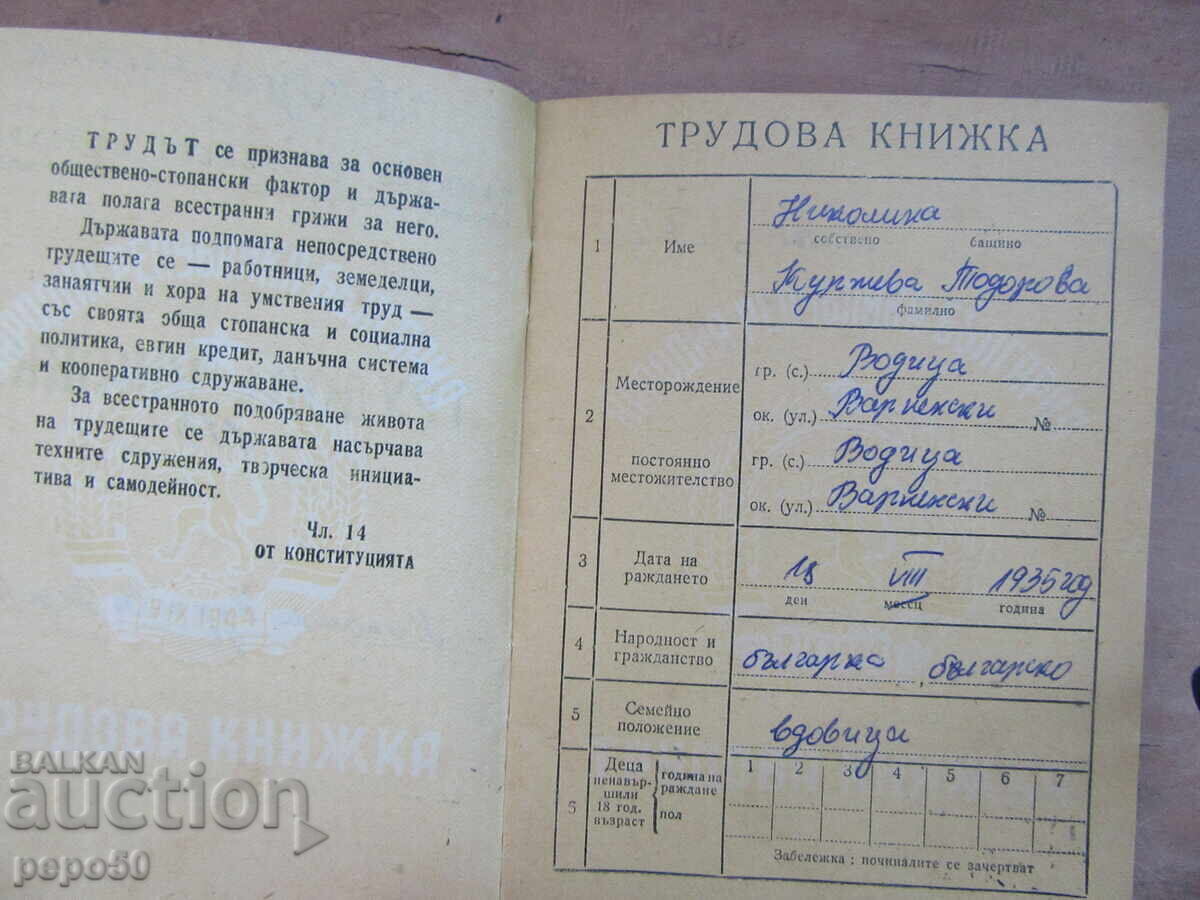 ТРУДЪТ се признава за основен
обществено-стопански фактор и държа-
вата полага всестранни грижи за него.
Държавата подпомага непосредствено
трудещите се — работници, земеделци,
занаятчии и хора на умствения труд —
със своята обща стопанска и социална
политика, евтин кредит, данъчна система
и кооперативно сдружаване.
За всестранното подобряване живота
на трудещите се държавата насърчава
техните сдружения, творческа инициа-
тива и самодейност.
Чл. 14
ОТ КОНСТИТУЦИЯТА
ТРУДОВА КНИЖКА
1 Име Николина
собствено бащино
Тодорова
фамилно
2 Месторождение гр. (с.) Водица
ок. (ул.) Варненски №
постоянно местожителство гр. (с.) Водица
ок. (ул.) Варненски №
3 Дата на раждането VIII 1935 год
ден месец година
4 Народност и гражданство българка, българско
5 Семейно положение вдовица
Деца ненавършили 18 год. възраст година на раждане пол 1 2 3 4 5 6 7
Забележка: починалите се зачертват
BALKAN
auction
pepo50